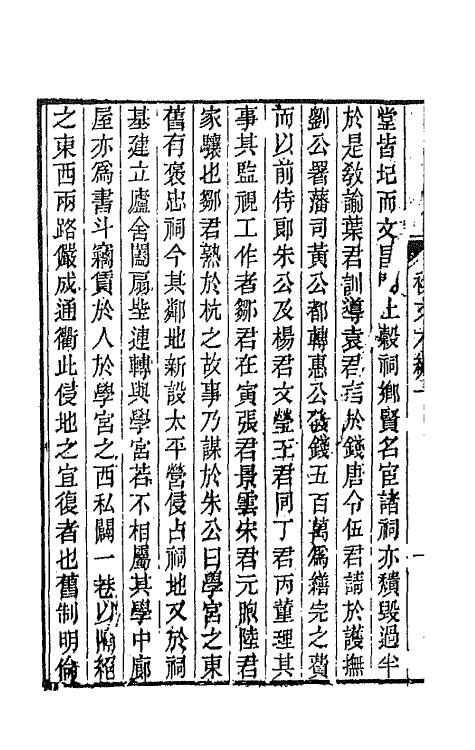 堂皆圮而文昌閣土穀祠鄉賢名宦諸祠亦積毀過半
於是敎諭葉君訓導袁君言於錢唐令伍君請於護撫
劉公署藩司黃公都轉惠公發錢五百萬爲繕完之費
而以前侍郞朱公及楊君文瑩王君同丁君丙董理其
事其監視工作者鄒君在寅張君景雲宋君元煦陸君
家驥也鄒君熟於杭之故事乃謀於朱公曰學宮之東
舊有褒忠祠今其鄰地新設太平營侵占祠地又於祠
基建立廬舍闔扇垒連轉與學宮若不相屬其學中廊
屋亦爲書斗竊賃於人於學宮之西私闢一巷以隔絕
之東西兩路儼成通衢此侵地之宜復者也舊制明倫